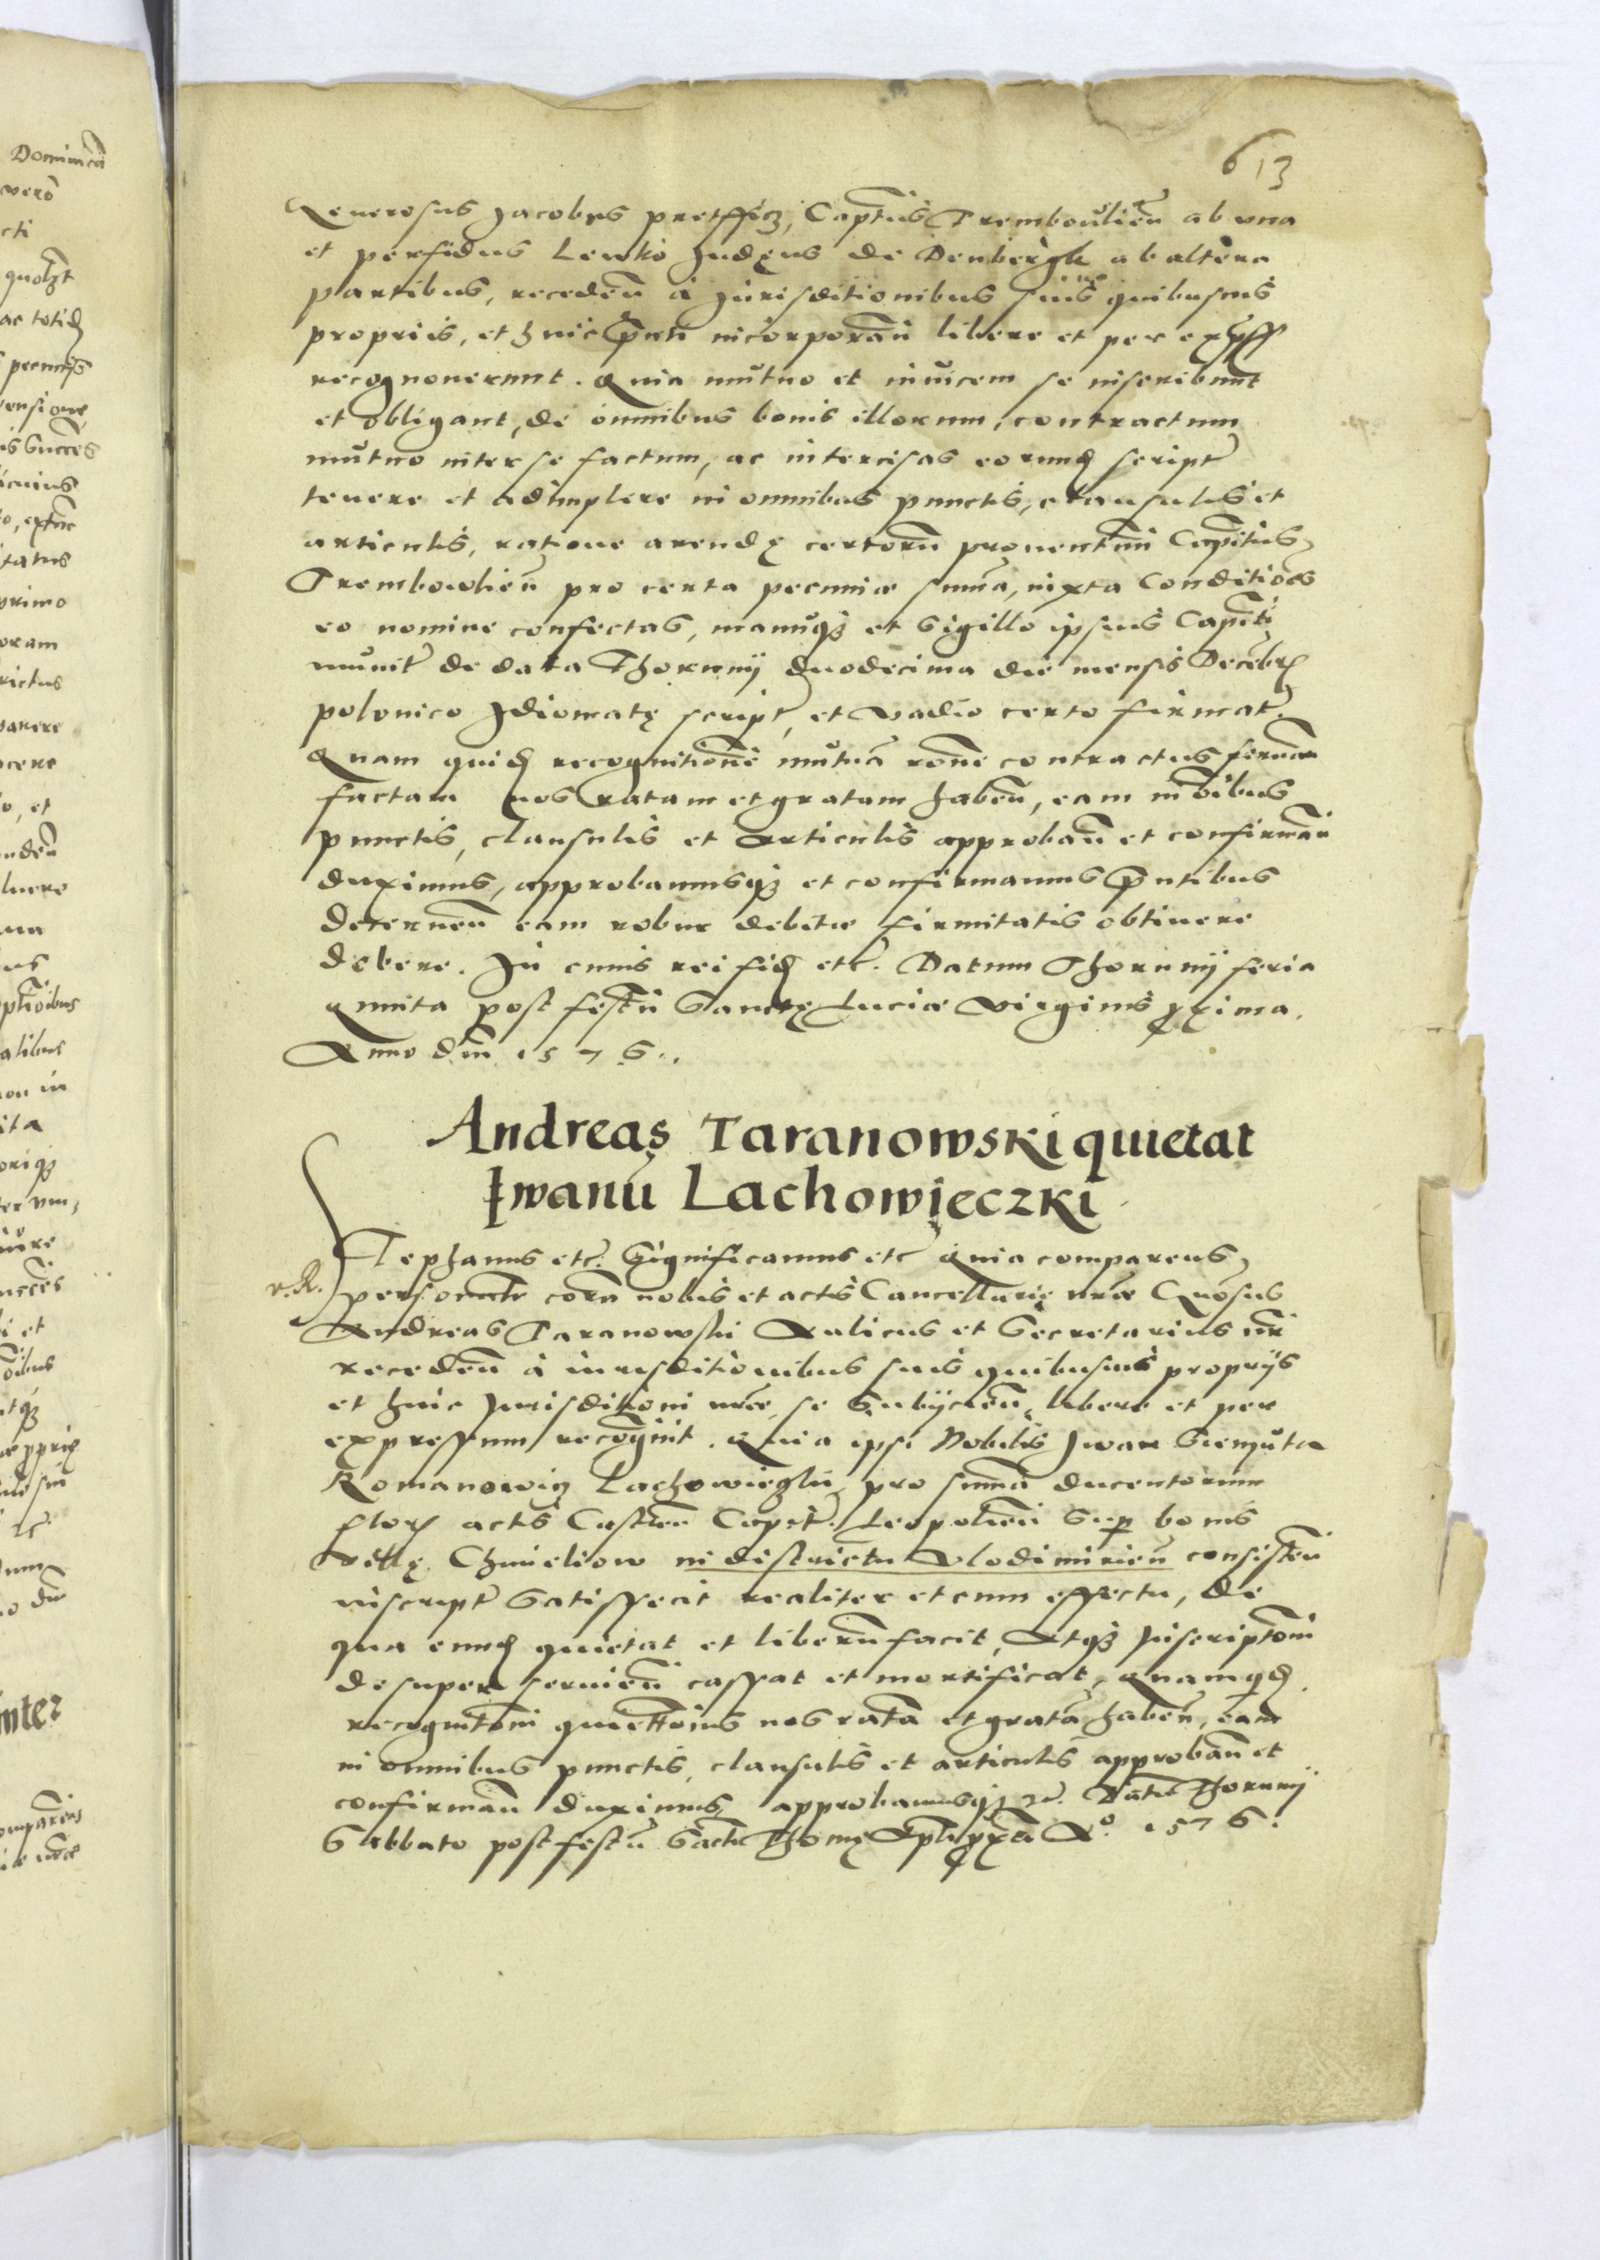 613
Generosus Jacobus pretfficz, Capitneus Tremboulien ab una
et perfidus Lewko Judęus de Denbergk ab altera
partibus, receden à jurisditionibus suis quibusuis
propriis, et huic pnti incorporan libere et per expss
recognoverunt. Quia mutuo et inuicem se inscribunt
et obligant, de omnibus bonis illorum, contractum
mutuo inter se factum, ac intercisas eorund script
tenere et adimplere in omnibus punctis, clausulis et
articulis, ratione arendę certoru prouentuum Capitneus
Trembowlien pro certa pecuniæ suma, iuxta Conditioes
eo nomine confectas, manuq3 et sigillo ipsius Capitnei
munit de data Thorunij duodecima die mensis Decebr
polonico Idiomatę script, et vadio certo firmat.
Quam quid recognitione mutua rone contractus firma
factam nos ratam et gratam haben, eam in oibus
punctis, clausulis et articulis approban et confirman
duximus, approbamusq3 et confirmamus pntibus
decernen eam robur debitæ firmitatis obtinere
debere. In cuius rei fid etc. Datum Thorunij feria
quinta post festu Sanctę Luciæ Virginis pxima.
Anno dni 1576..
Andreas Taranowski quietat
Iwanu Lachowieczki
Stephanus etc. Significamus etc Quia comparens
v.R.
personalr cora nobis et actis Cancellarię nræ Gnosus
Andreas Taranowski Aulicus et Secretarius nr
receden à iurisditionibus suis quibusuis proprijs
et huic Jurisditioni nræ se subijcien, libere et per
expressum recognit. Quia ipsi Nobilis Jwan Siemuta
Romanowicz Lachowiczki pro suma ducentorum
flor actis Castren Capit. Leopolien sup bonis
villę Chmieliow in districtu Vlodimirien consisten
inscript satisfecit realiter et cum effectu, de
qua eund quietat et liberu facit, Atq3 Inscriptoni
desuper seruien cassat et mortificat, Quam qd
recognitoni quiettonis nos rata et grata haben, eam
in omnibus punctis, clausulis et articulis approban et
confirman duximus, approbamusq3 etc. Datu Thorunij
Sabbato post festu Scti Thomę Apli pxia Ao. 1576.